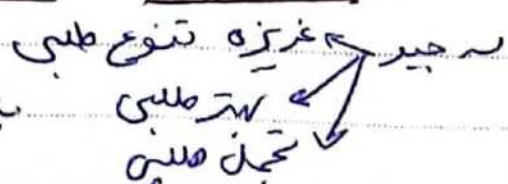 جید غریزه تنوع طلبی
بهتر طلبی
تجمل طلبی